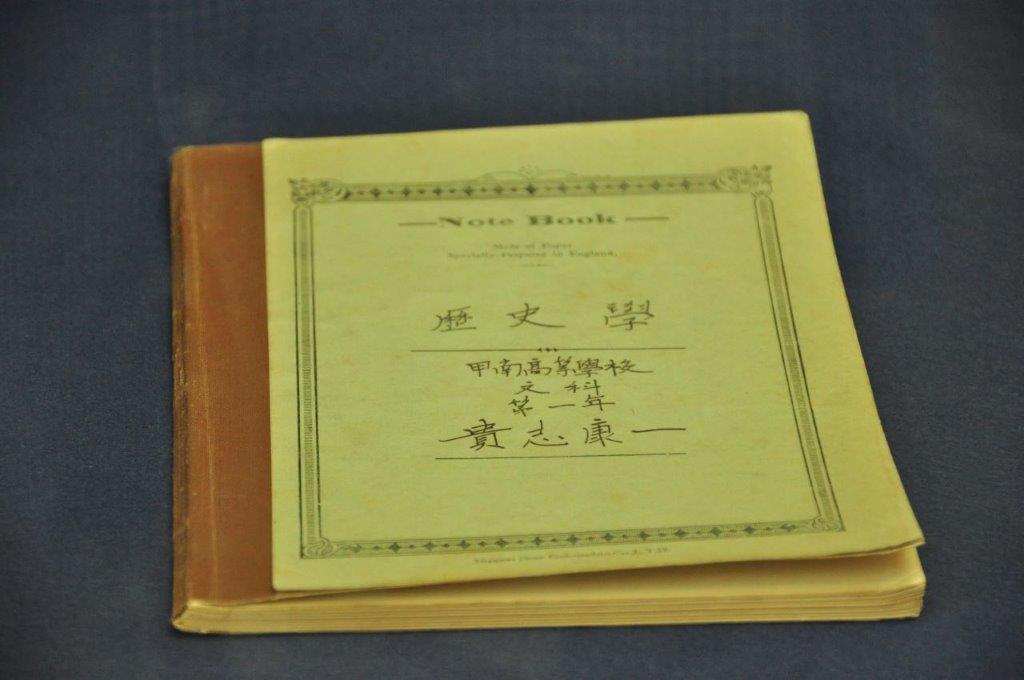 Note Book
Made of Paper
Specially Prepared in England.
歴史學
甲南高等學校
文科
第一年
貴志康一